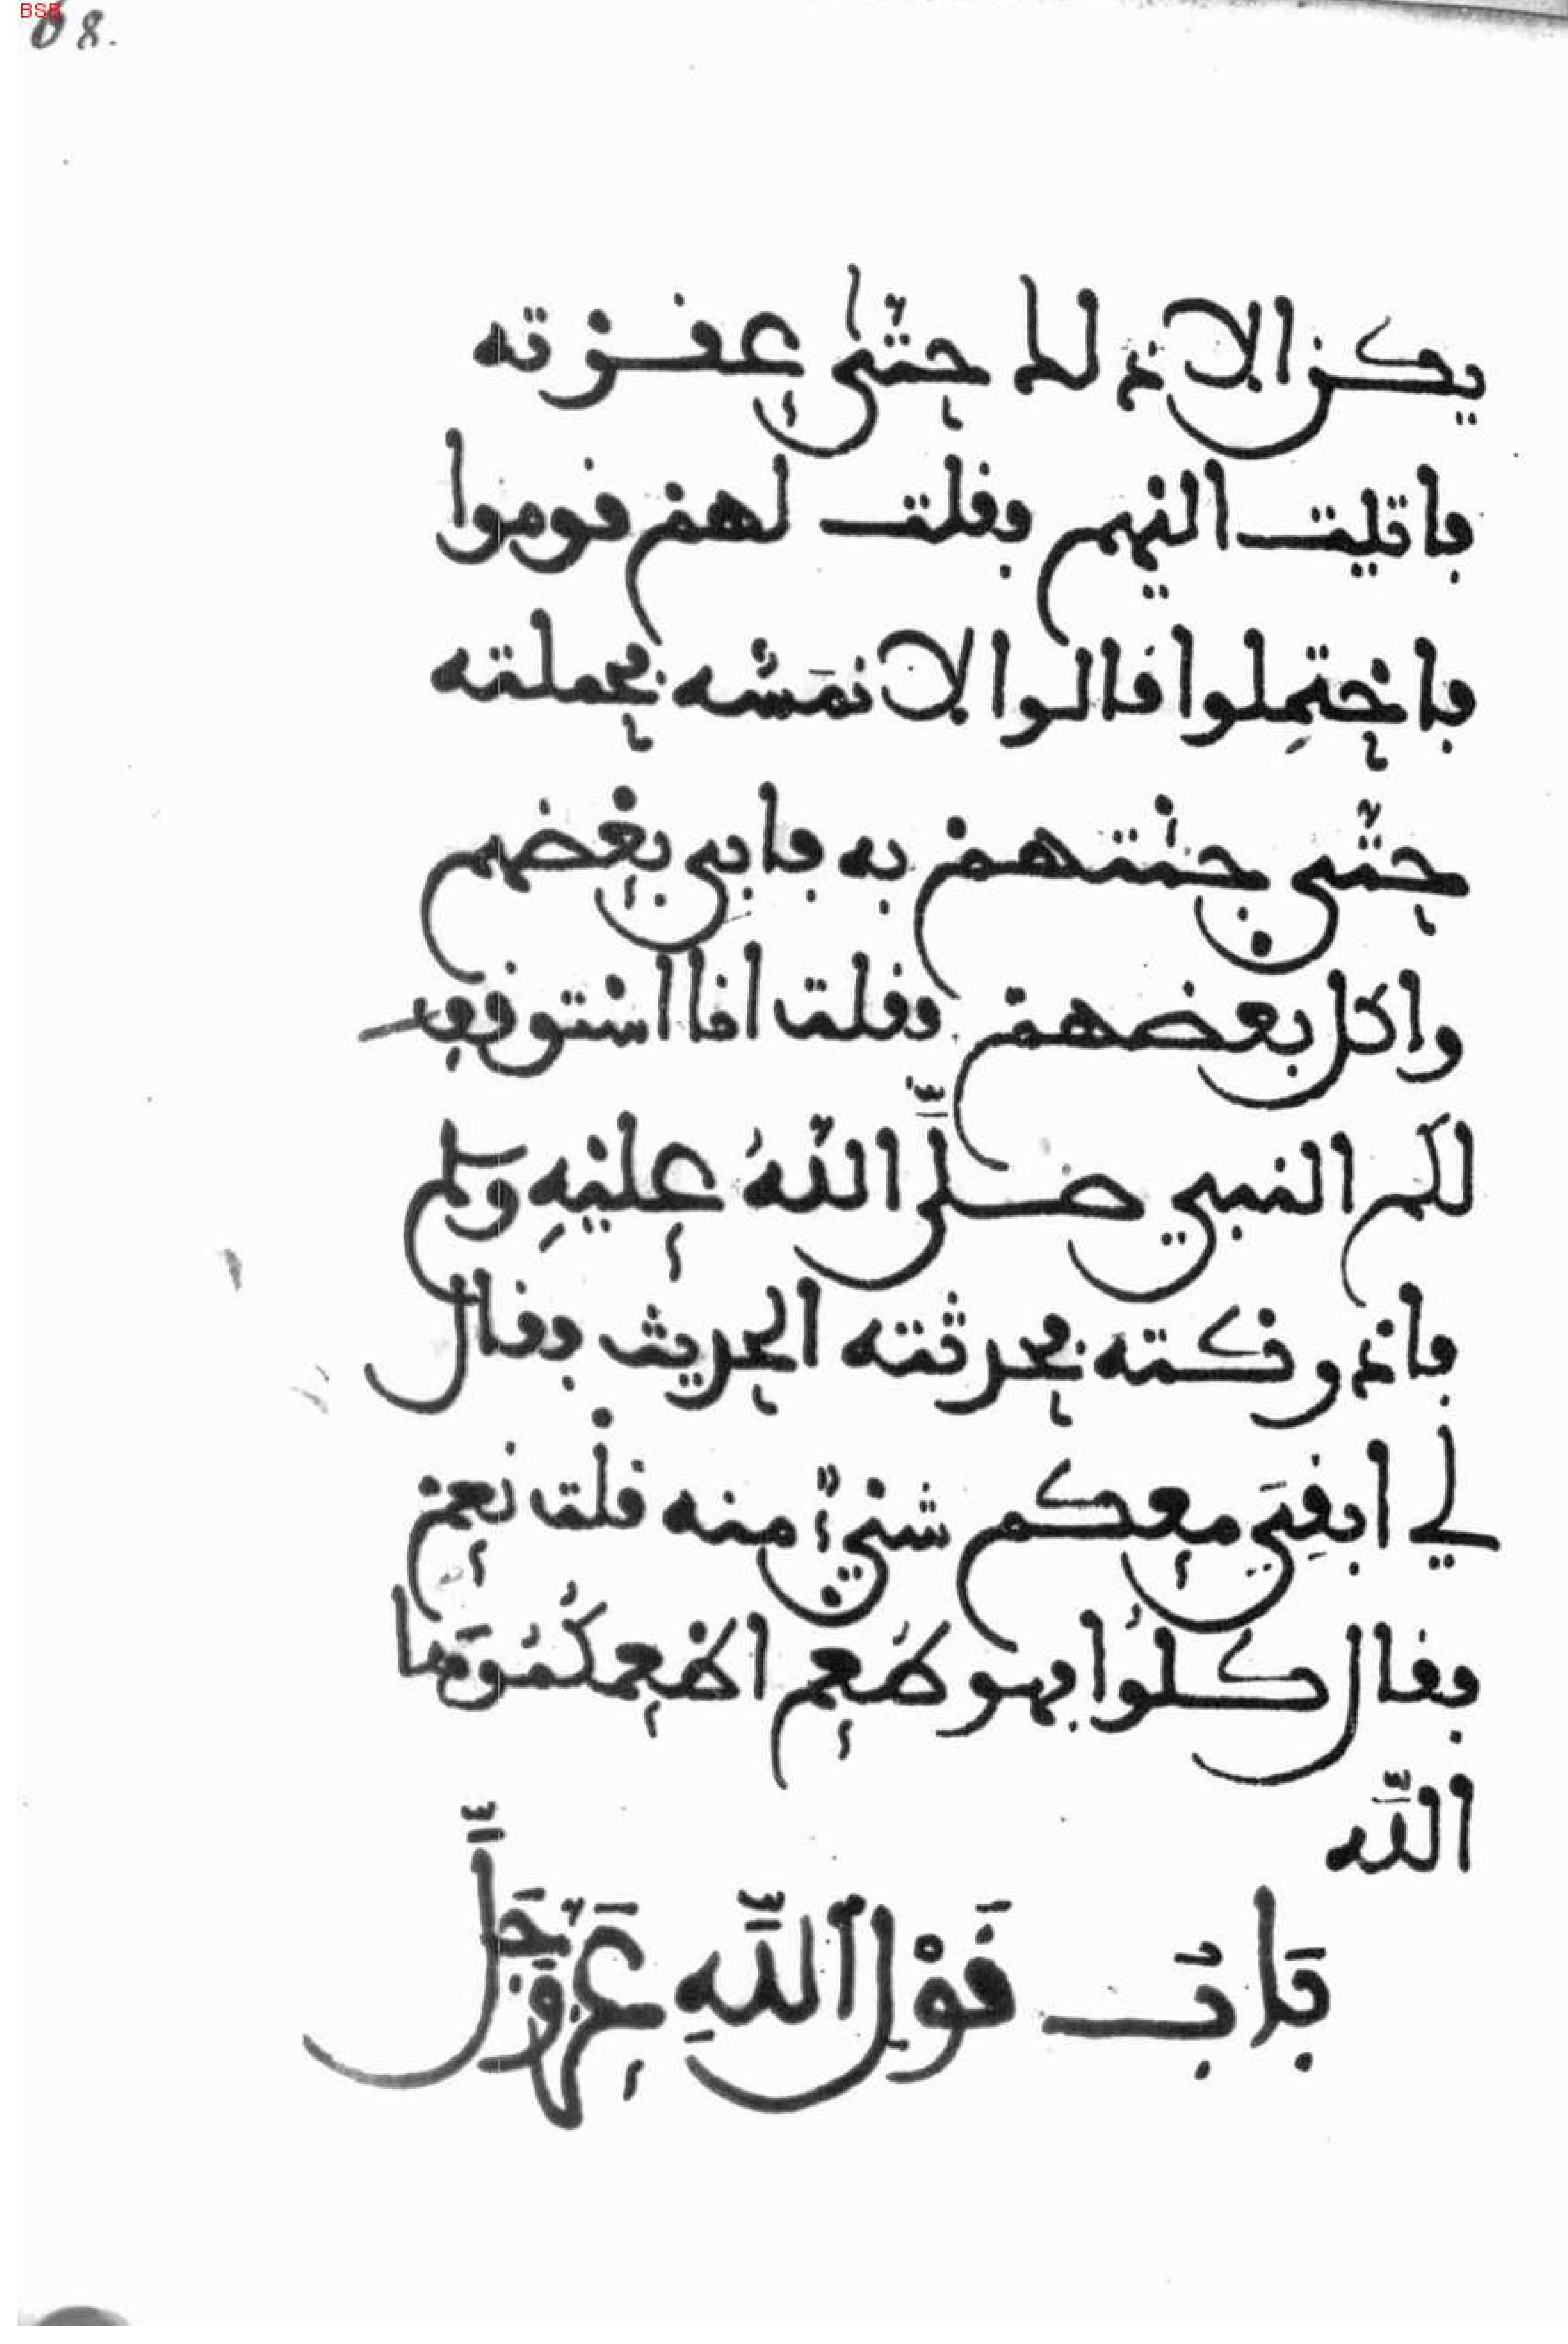 BSB
68.
يكن الا ذلك حتى عقرته
فاتيت اليهم فقلت لهم قوموا
فاحتملوا قالوا لا نمسه فحملته
حتى جئتهم به فابى بعضهم
واكل بعضهم فقلت انا استوقف
لكم النبي صلى الله عليه وسلم
فادركته فحدثته الحديث فقال
لي ابقي معكم شيء منه قلت نعم
فقال كلوا فهو طعم اطعمكموها
الله
بَابُ قَوْلِ اللَّهِ عَزَّ وَجَلَّ